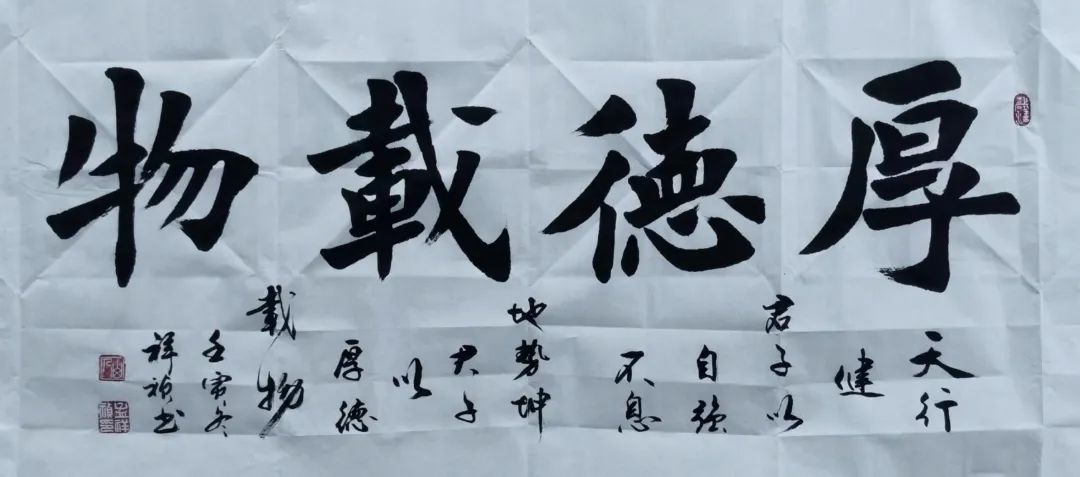 厚德載物
天行
健
君子以
自強
不息
地勢坤
君子
以
厚德
載物
壬寅冬
祥禎书